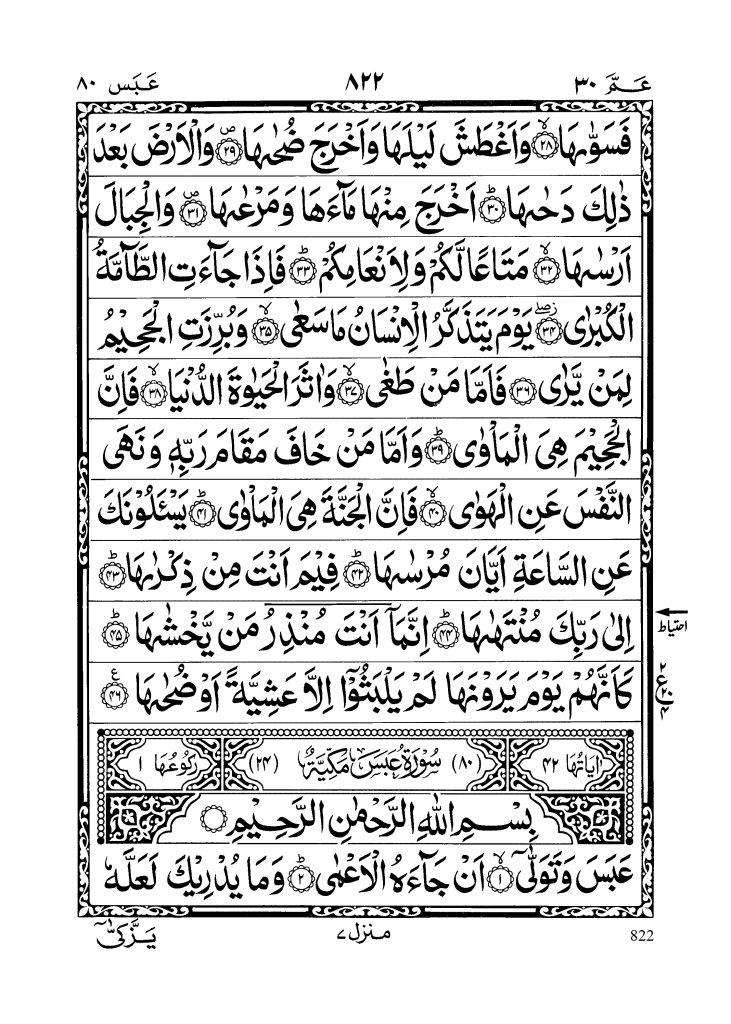 عَمَّ ٣٠ ٨٢٢ عَبَسَ ٨٠
فَسَوّٰىهَا ۙ﴿۲۸﴾ وَاَغْطَشَ لَيْلَهَا وَاَخْرَجَ ضُحٰىهَا ۪﴿۲۹﴾ وَالْاَرْضَ بَعْدَ
ذٰلِكَ دَحٰىهَا ؕ﴿۳۰﴾ اَخْرَجَ مِنْهَا مَآءَهَا وَمَرْعٰىهَا ۪﴿۳۱﴾ وَالْجِبَالَ
اَرْسٰىهَا ۙ﴿۳۲﴾ مَتَاعًا لَّكُمْ وَلِاَنْعَامِكُمْ ؕ﴿۳۳﴾ فَاِذَا جَآءَتِ الطَّآمَّةُ
الْكُبْرٰى ۫ۖ﴿۳۴﴾ يَوْمَ يَتَذَكَّرُ الْاِنْسَانُ مَا سَعٰى ۙ﴿۳۵﴾ وَبُرِّزَتِ الْجَحِيْمُ
لِمَنْ يَّرٰى ﴿۳۶﴾ فَاَمَّا مَنْ طَغٰى ۙ﴿۳۷﴾ وَاٰثَرَ الْحَيٰوةَ الدُّنْيَا ۙ﴿۳۸﴾ فَاِنَّ
الْجَحِيْمَ هِيَ الْمَاْوٰى ؕ﴿۳۹﴾ وَاَمَّا مَنْ خَافَ مَقَامَ رَبِّهٖ وَنَهَى
النَّفْسَ عَنِ الْهَوٰى ۙ﴿۴۰﴾ فَاِنَّ الْجَنَّةَ هِيَ الْمَاْوٰى ؕ﴿۴۱﴾ يَسْـَٔلُوْنَكَ
عَنِ السَّاعَةِ اَيَّانَ مُرْسٰىهَا ؕ﴿۴۲﴾ فِيْمَ اَنْتَ مِنْ ذِكْرٰىهَا ؕ﴿۴۳﴾
اِلٰى رَبِّكَ مُنْتَهٰىهَا ؕ﴿۴۴﴾ اِنَّمَآ اَنْتَ مُنْذِرُ مَنْ يَّخْشٰىهَا ؕ﴿۴۵﴾
احتياط
كَاَنَّهُمْ يَوْمَ يَرَوْنَهَا لَمْ يَلْبَثُوْۤا اِلَّا عَشِيَّةً اَوْ ضُحٰىهَا ﴿۴۶﴾ ع
۲ ع ۲۰ ۴
اٰيَاتُهَا ۴۲ (۸۰) سُوْرَةُ عَبَسَ مَكِّيَّةٌ (۲۴) رُكُوْعُهَا ۱
بِسْمِ اللّٰهِ الرَّحْمٰنِ الرَّحِيْمِ
عَبَسَ وَتَوَلّٰىۤ ۙ﴿۱﴾ اَنْ جَآءَهُ الْاَعْمٰى ؕ﴿۲﴾ وَمَا يُدْرِيْكَ لَعَلَّهٗ
يَزَّكّٰىۤ
منزل ۷
822